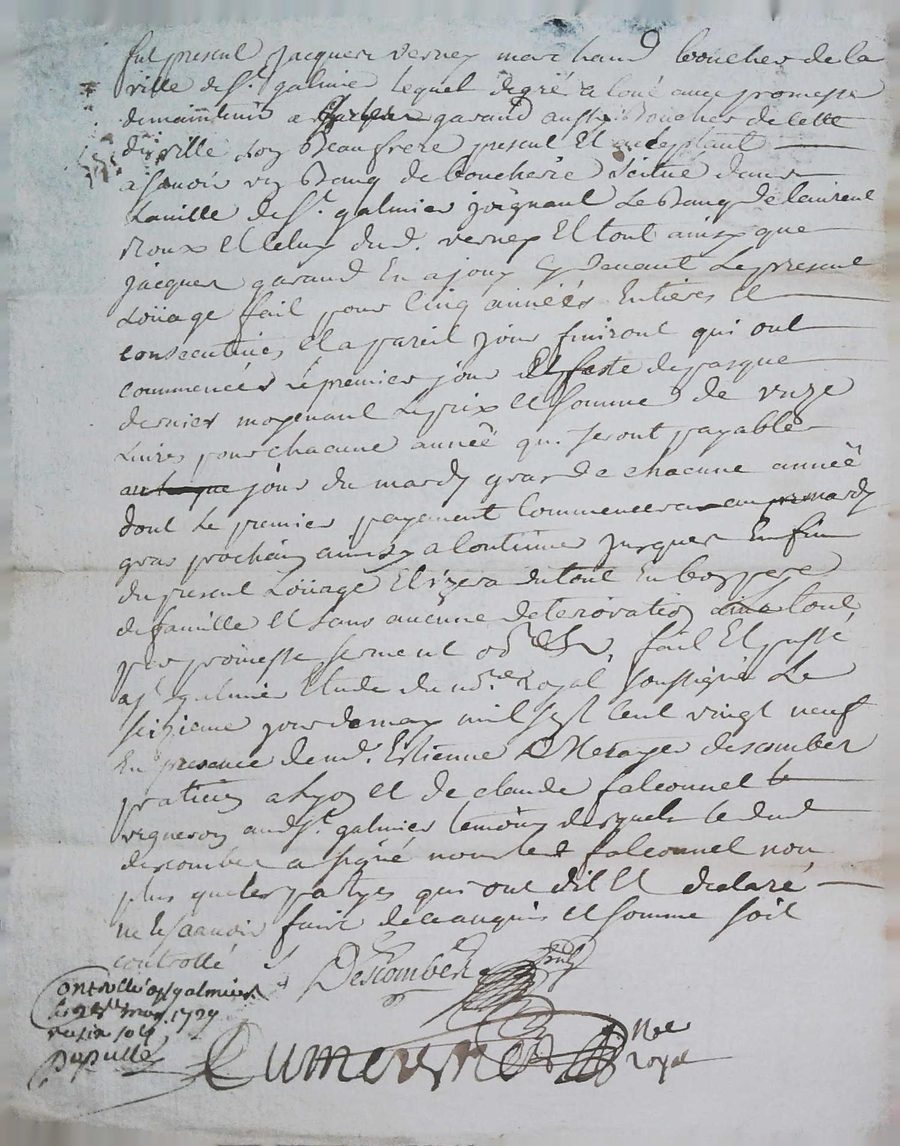 fut present Jacques verney marchand boucher de la
ville de St. galmier lequel degré a loué avec promesse
de maintenir a garand aussy Boucher de cette
ditte ville son Beaufrere present Et acceptant
a sçavoir un Banq de boucherie scitue dans
Laville de St. galmier joignant Le Banq de laurent
Roux et celuy dud. verney Et tout ainsy que
jacques garand En a jouy cy Devant Le present
Loüage fait pour cinq années Entieres et
consecutives Et a pareil jour finiront qui ont
commencés le premier jour et feste de pasque
dernier moyenant Le prix et somme de unze
Livres pour chacune année qui seront payable
jour du mardy gras de chacune année
dont Le premier payement Commencera au mardy
gras prochain ainsy a continuer jusques En fin
du present Loüage Et uzera du tout En bon pere
de famille et sans aucune deterioration tout
par promesse serment obon &a. fait Et passé
a St. galmier Etude du nore. Royal soussigné Le
seizieme jour de may mil sept cent vingt neuf
En presence de md. Estienne descomber
praticien a Lyon et de claude falconnet
vigneron aud St. galmier temoins desquels le dud
descomber a signé non led falconnet non
plus que les partyes qui ont dit et declaré
ne le scavoir faire de ce enquis et somme soit
controllé
Descomber
Controllé a St galmier
le may 1729
recu 
Dumoulin Nre
royal